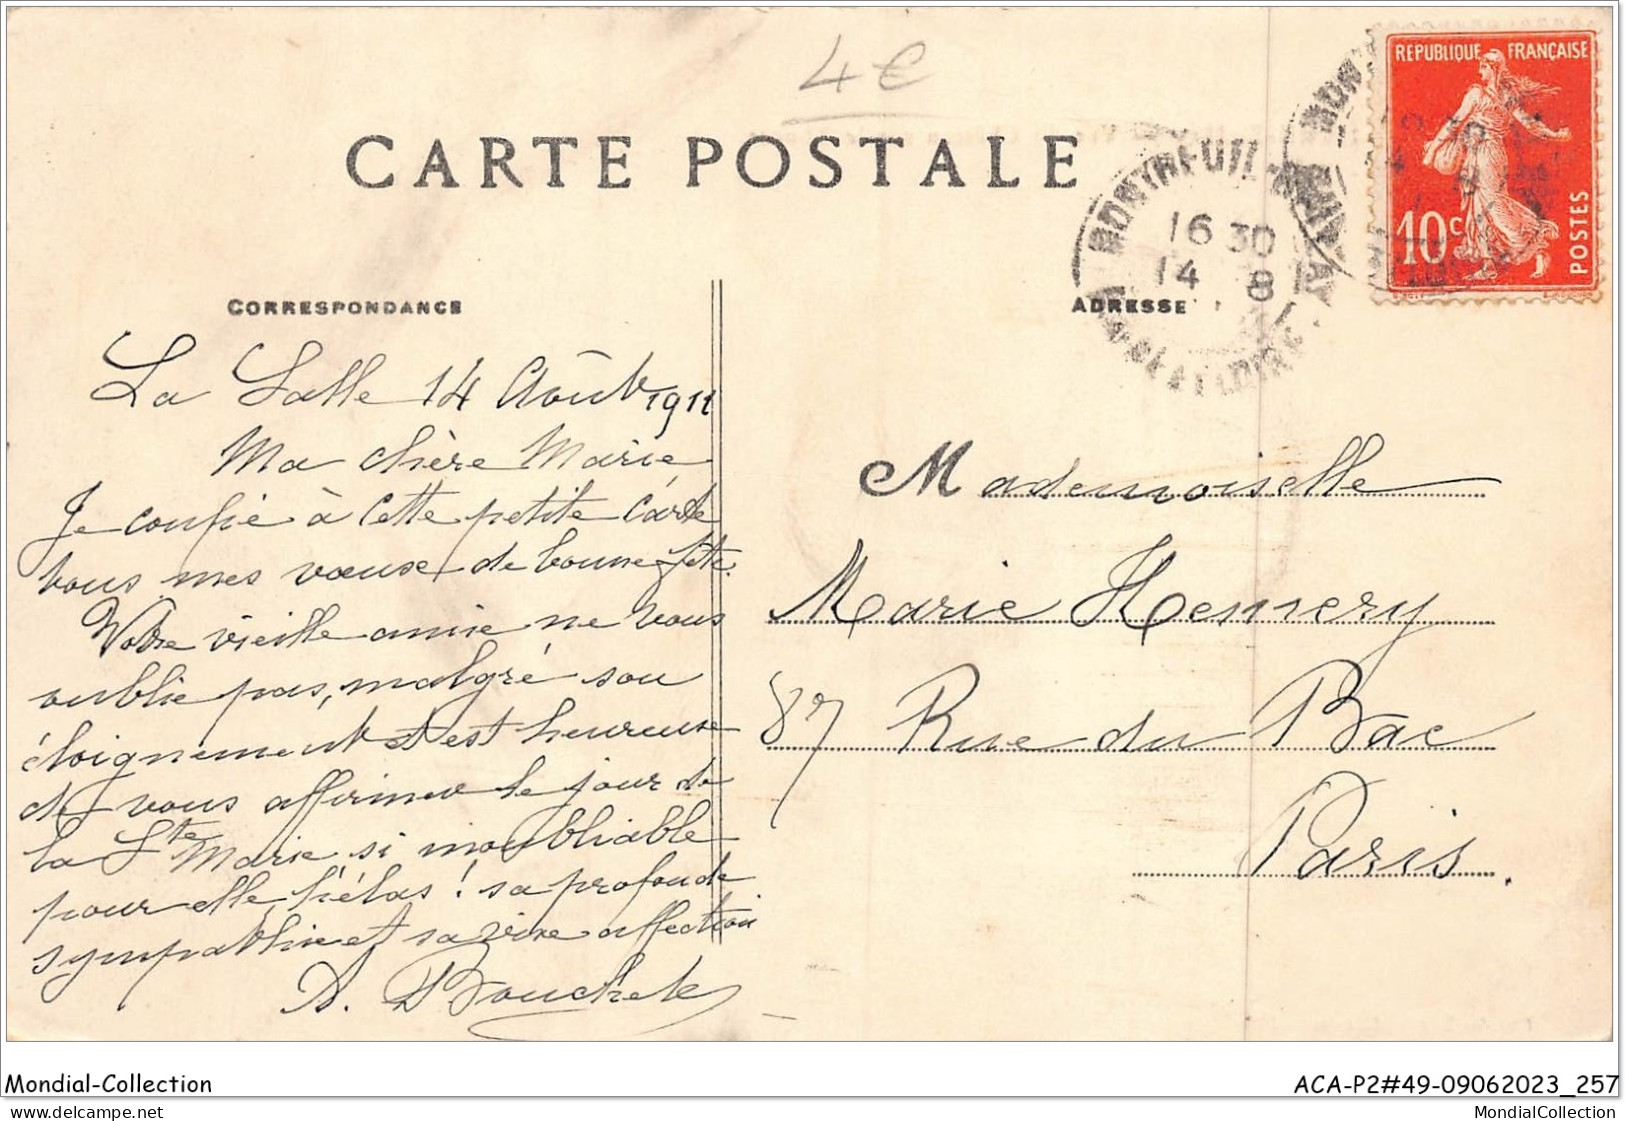 4€
CARTE POSTALE
REPUBLIQUE FRANÇAISE
10c
POSTES
MONTREUIL
16 30
14 8
ET LOIRE
CORRESPONDANCE
ADRESSE
La Salle 14 Août 1911
Ma chère Marie
Je confie à cette petite carte
tous mes vœux de bonne fête.
Votre vieille amie ne vous
oublie pas, malgré son
éloignement et est heureuse
de vous affirmer le jour de
la Ste Marie si inoubliable
pour elle, hélas! sa profonde
sympathie et sa vive affection
A. Bouchet
Mademoiselle
Marie Hemery
87 Rue du Bac
Paris.
Mondial-Collection
ACA-P2#49-09062023_257
www.delcampe.net
MondialCollection